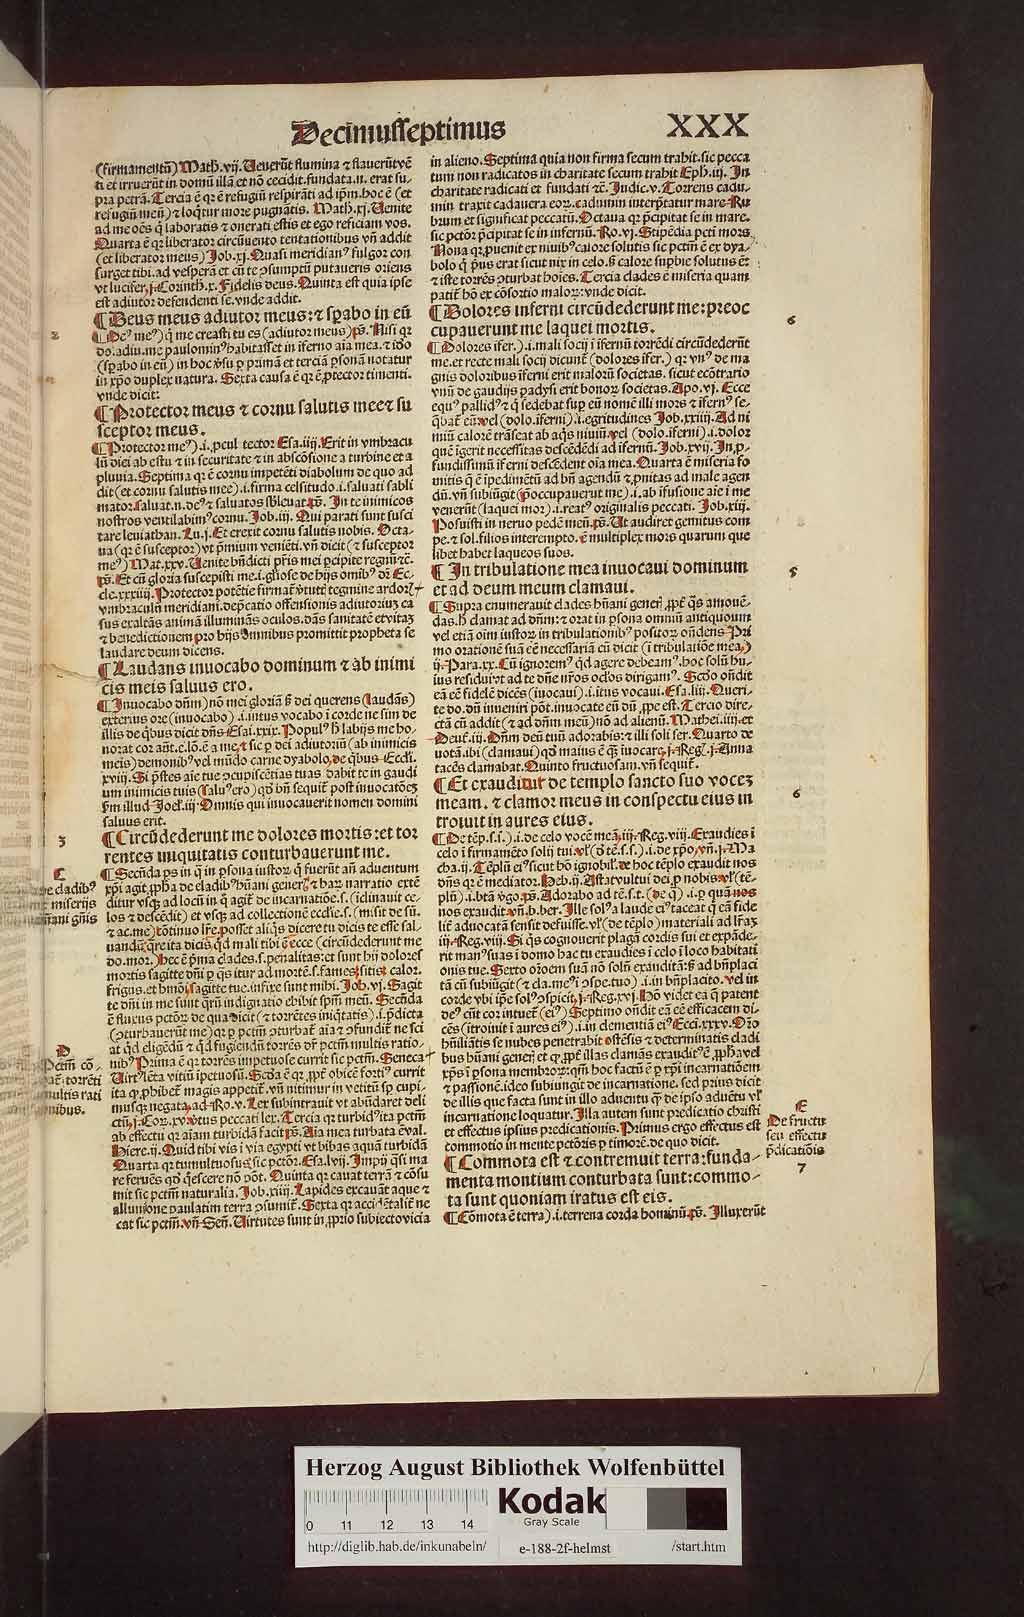 Decimusseptimus
XXX
(firmamentū) Math̄.vij. Uenerūt flumina ⁊ flauerūt vē
ti et irruerūt in domū illā et nō cecidit. fundata.n. erat su-
pra petrā. Tercia ē qr ē refugiū respirāti ad ip̄m. hoc ē (et
refugiū meū) ⁊ loq̄tur more pugnātis. Math̄.xj. Uenite
ad me oēs q̄ laboratis ⁊ onerati estis et ego reficiam vos.
Quarta ē qr liberator circūuento tentationibus vn̄ addit
(et liberator meus) Job.xj. Quasi meridianꝰ fulgor con
surget tibi. ad vesperā et cū te ↄsumptū putaueris oriens
vt lucifer. j. Corinth̄.x. Fidelis deus. Quinta est quia ipse
est adiutor defendenti se. vnde addit.
¶ Deus meus adiutor meus: ⁊ spabo in eū
2
¶ Deꝰ meꝰ) q̄ me creasti tu es (adiutor meus) ps̄. Nisi qr
do. adiu. me paulominꝰ habitasset in īferno aīa mea. ⁊ ido
(spabo in eū) in hoc v̄su p primā et terciā p̄sonā notatur
in xp̄o duplex natura. Sexta causa ē qr ē ꝓtector timenti.
vnde dicit:
¶ Protector meus ⁊ cornu salutis mee ⁊ su
sceptor meus.
¶ Protector meꝰ).i. ꝓcul tector Esa.iiij. Erit in vmbracu
lū diei ab estu ⁊ in securitate ⁊ in abscōsione a turbine et a
pluvia. Septima qr ē cornu impetēti diabolum de quo ad
dit (et cornu salutis mee).i. firma celsitudo.i. saluati sabli
nostros ventilabimꝰ cornu. Job.iij. Qui parati sunt susci
tare leuiathan. Lu.j. Et erexit cornu salutis nobis. Octa-
ua (qr ē susceptor) vt p̄mium veniēti. vn̄ dicit (⁊ susceptor
meꝰ) Mat.xxv. Uenite bn̄dicti pr̄is mei ꝑcipite regnū ⁊c̄.
ps̄. Et cū gloria suscepisti me.
vmbraculū meridiani. dep̄catio offensionis adiutoriuz ca
sus exaltās animā illuminās oculos. dās sanitatē et vitaz
⁊ benedictionem pro hijs omnibus promittit propheta se
laudare deum dicens.
¶ Laudans inuocabo dominum ⁊ ab inimi
cis meis saluus ero.
¶ Inuocabo dn̄m) nō mei gloriā s̄ dei querens (laudās)
exterius ore (inuocabo).i. intus vocabo ī corde ne sim de
illis de q̄bus dicit dn̄s Esai.xxix. Populꝰ h̄ labijs me ho-
norat cor aūt.e.lō.ē a me, ⁊ sic p dei adiutoriū (ab inimicis
meis) demonibꝰ vel mūdo carne dyabolo, de q̄bus Eccli.
xviij. Si p̄stes aīe tue ↄcupiscētias tuas dabit te in gaudi
um inimicis tuis (saluꝰ ero) qd̄ bn̄ sequit̄ post inuocatōeȝ
p̄m illud Joel.iij. Omnis qui inuocauerit nomen domini
saluus erit.
3
¶ Circūdederunt me dolores mortis: et tor
rentes iniquitatis conturbauerunt me.
C
de cladibꝰ
⁊ miserijs
hūani gn̄is
¶ Secūda ps in q̄ in p̄sona iustorꝫ q̄ fuerūt an̄ aduentum
xp̄i agit, ꝓpha de cladibꝰ hūani generꝭ ⁊ harꝫ narratio extē
ditur vsqꝫ ad locū in q̄ agit̄ de incarnatiōe.s. (īclinauit ce-
los ⁊ descēdit) et vsqꝫ ad collectionē eccl̄ie.s. (misit de sū.
do.mor.) hec ē p̄ma clades.s. penalitas: et sunt hij dolores
mortis sagitte dn̄i p q̄s itur ad mortē.s. fames, sitis, calor.
frigus. et hmōi, sagitte tue. infixe sunt mihi. Job.vj. Sagit
te dn̄i in me sunt q̄rū indignatio ebibit sp̄m meū. Secūda
ē fluxus pctōrꝫ de qua dicit (⁊ torrētes iniq̄tatis).i. p̄dicta
(ↄturbauerūt me) qr p pctm̄ ↄturbat̄ aīa ⁊ ↄfundit̄ ne sci
at qd̄ eligēdū ⁊ qd̄ fugiendū torrēs dr̄ pctm̄ multis ratio-
D
Pctm̄ cō-
pat̄. torrēti
multis rati
onibus.
nibꝰ Prima ē qr torrēs impetuose currit sic pctm̄. Seneca
Uirtꝰ lēta vitiū ipetuosū. Scd̄a ē qr, ꝓpt̄ obicē fortiꝰ currit
ita q, ꝓhibet̄ magis appetit̄. vn̄ nitimur in vetitū sp cupi-
musqꝫ negata, ad Ro.v. Lex subintrauit vt abūdaret deli
ctū, j. Cor.xv. v̄tus peccati lex. Tercia qr turbidꝰ ita pctm̄
ab effectu qr aīam turbidā facit ps̄. Aīa mea turbata ē val.
Hiere.ij. Quid tibi vis ī via egypti vt bibas aquā turbidā
Quarta qr tumultuosus, sic pctōr. Esa.lvij. Impij q̄si ma
re feruēs qd̄ q̄escere nō pōt. Quinta qr cauat terrā ⁊ cōsu
mit sic pctm̄ naturalia. Job.xiiij. Lapides excauāt aque ⁊
alluuione paulatim terra ↄsumit̄. Sexta qr accidētalit̄ ne
cat sic pctm̄. vn̄ Sen̄. Uirtutes sunt in, ꝓprio subiecto vicia
in alieno. Septima quia non firma secum trahit. sic pecca
tum non radicatos in charitate secum trahit Eph̄.iij. In
charitate radicati et fundati ⁊c̄. Judic.v. Torrens cadu-
min traxit cadauera eorꝫ. cadumin interp̄tatur mare. Ru
brum et significat peccatū. Octaua qr p̄cipitat se in mare.
sic pctōr p̄cipitat se in infernū. Ro.vj. Stipēdia pcti mors
Nona qr, ꝓuenit ex niuibꝰ calore solutis sic pctm̄ ē ex dya-
bolo q̄ p̄us erat sicut nix in celo. s̄ calore supbie solutus ē:
⁊ iste torrēs ↄturbat hoīes. Tercia clades ē miseria quam
patit̄ hō ex cōsortio malorꝫ: vnde dicit.
¶ Dolores inferni circūdederunt me: preoc
cupauerunt me laquei mortis.
6
¶ Dolores īfer.).i. mali socij ī īfernū torrēdi circūdederūt
me. et recte mali socij dicunt̄ (dolores īfer.) qr vnꝰ de ma
gnis doloribus īferni erit malorū societas. sicut ecōtrario
vnū de gaudijs padysi erit bonorꝫ societas. Apo.vj. Ecce
equꝰ pallidꝰ ⁊ q̄ sedebat sup eū nomē illi mors ⁊ īfernꝰ se-
q̄bat̄ eū. vel (dolo.īferni).i. egritudines Job.xxiiij. Ad ni
miū calorē trāseat ab aq̄s niuiū. vel (dolo.īferni).i. dolor
quē īgerit necessitas descēdēdi ad īfernū. Job.xvij. In, ꝓ-
fundissimū īferni descēdent oīa mea. Quarta ē miseria fo
mitis q̄ ē īpedimētū ad bn̄ agendū ⁊, pnitas ad male agen
dū. vn̄ subiūgit (p̄occupauerut me).i. ab īfusione aīe ī me
venerūt (laquei mor).i. reatꝰ originalis peccati. Job.xiij.
Posuisti in neruo pedē meū. ps̄. Ut audiret gemitus com
pe. ⁊ sol. filios interempto. ē multiplex mors quarum que
libet habet laqueos suos.
¶ In tribulatione mea inuocaui dominum
et ad deum meum clamaui.
5
¶ Supra enumerauit clades hūani generꝭ, ꝓpt̄ q̄s amouē-
das. h̄ clamat ad dn̄m: ⁊ orat in p̄sona omniū antiquorum
vel etiā oīm iustorꝫ in tribulationibꝰ positorꝫ on̄dens. Pri
mo orationē suā eē necessariā cū dicit (ī tribulatiōe mea.)
ij. Para.xx. Cū ignoremꝰ qd̄ agere debeamꝰ. hoc solū ha-
ius residui vt ad te dn̄e nr̄os ocl̄os dirigamꝰ. Scd̄o on̄dit
eā eē fidelē dicēs (inuocaui).i. intus vocaui. Esa.liij. Queri-
te do. dū inueniri pōt. inuocate eū dū, ꝓpe est. Tercio dire-
ctā cū addit (⁊ ad dn̄m meū) nō ad alienū. Mathei.iiij. et
Deut̄.iij. Dn̄m deū tuū adorabis: ⁊ illi soli ser. Quarto de
uotā. ibi (clamaui) qd̄ maius ē q̄ꝫ inuocare. j. Reḡ.j. Anna
tacēs clamabat. Quinto fructuosam. vn̄ sequit̄.
¶ Et exaudiuit de templo sancto suo voceȝ
meam. ⁊ clamor meus in conspectu eius in
troiuit in aures eius.
6
¶ De tēp.s.ī.).i. de celo vocē meā. iij. Reg.viij. Exaudies ī
celo ī firmamēto solij tui. vl̄ (d̄ tē.s.s.).i. de xp̄o, vn̄.j. Ma
cha.ij. Tēplū eiꝰ sicut hō ignobil̄. de hoc tēplo exaudit nos
dn̄s qr ē mediator. Heb.ij. Astat vultui dei p nobis. vl̄ (tē-
plū).i. btā v̄go. ps̄. Adorabo ad tē.s.t. (de q̄).i. p quā nos
nos exaudit. vn̄. b. ber. Ille solꝰ a laude eiꝰ taceat q̄ eā fide
lit̄ aduocatā sensit defuisse. vl̄ (de tēplo) materiali ad lr̄aȝ
iij. Reg.viij. Si q̄s cognouerit plagā cordis sui et expāde-
rit manꝰ suas ī domo hac tu exaudies ī celo ī loco habitati
onis tue. Sexto or̄oem suā nō solū exauditā: s̄ ad bn̄placi
tā cū subiūgit (⁊ cla.meꝰ ī ↄspe.tuo).i. in bn̄placito. vel in
corde vbi ip̄e solꝰ ↄspicit, j. Reg.xvj. Hō videt ea q̄ patent
deꝰ aūt cor intuet̄ (eiꝰ) Septimo on̄dit eā eē efficacem di-
cēs (introiuit ī aures eiꝰ).i. in clementiā eiꝰ Ecci.xxxv. Or̄o
hūiliātis se nubes penetrabit. ostēsis ⁊ determinatis cladi
bus hūani generꝭ et q, ꝓpt̄ illas clamās exauditꝰ ē, ꝓpha vel
xp̄s ī p̄sona membrorꝫ: qm̄ hoc factū ē p xp̄i incarnatiōem
⁊ passionē. ideo subiungit de incarnatione. sed prius dicit
de illis que facta sunt in illo aduentu q̄ de ipso aduētu vl̄
incarnatione loquatur. Illa autem sunt predicatio christi
et effectus ipsius predicationis. Primus ergo effectus est
commotio in mente pctōris p timorē. de quo dicit.
E
De fructu
seu effectu
p̄dicatiōis
7
¶ Commota est ⁊ contremuit terra: funda-
menta montium conturbata sunt: commo-
ta sunt quoniam iratus est eis.
¶ Cōmota ē terra).i. terrena corda hominū. ps̄. Illuxerūt
Herzog August Bibliothek Wolfenbüttel
Kodak
Gray Scale
0 11 12 13 14
http://diglib.hab.de/inkunabeln/ e-188-2f-helmst /start.htm